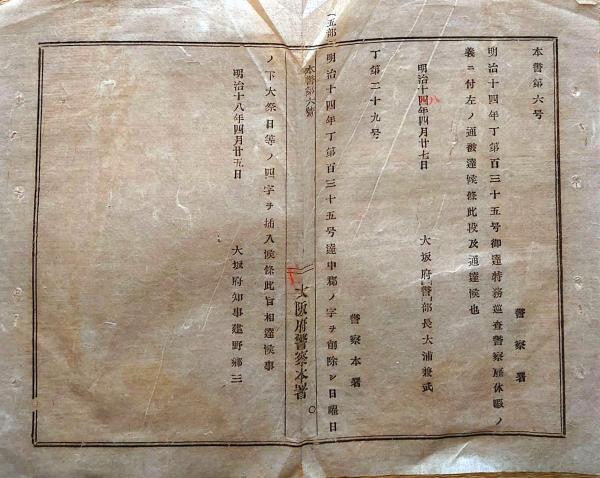 本署第六号
警察署
明治十四年丁第百三十五号御達特務巡査警察居休暇ノ
義ニ付左ノ通被達候條此段及通達候也
明治十四年四月廿七日
八
大坂府警部長大浦兼武
丁第二十九号
警察本署
明治十四年丁第百三十五号達中郷ノ字ヲ削除シ日曜日
本署第六号
大阪府警察本署
ノ下大祭日等ノ四字ヲ插入候條此旨相達候事
明治十八年四月廿五日
大坂府知事建野郷三